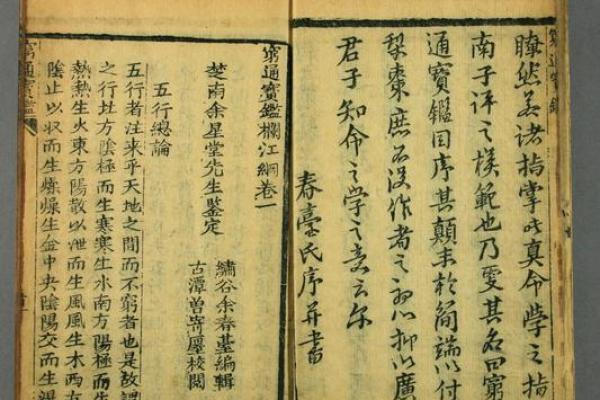 窮通寶鑑
瞭然若諸指掌此真命學之指
南子評之模範也乃更其名曰窮
通寶鑑因序其顛末於簡端以付
梨棗庶不没作者之心抑以廣
君子知命之學之意云尔
春臺氏序并書
窮通寶鑑欄江綱卷一
楚南余星堂先生鑒定
繡谷余春臺編輯
古潭曽寄
校閱
五行總論
五行者注来乎天地之間而不窮者也是故謂
之行北方陰極而生寒寒生水南方陽極而生
熱熱生火東方陽散以泄而生風風生木西方
陰止以収而生燥燥生金中央陰陽交而生濕
窮通寶鑑